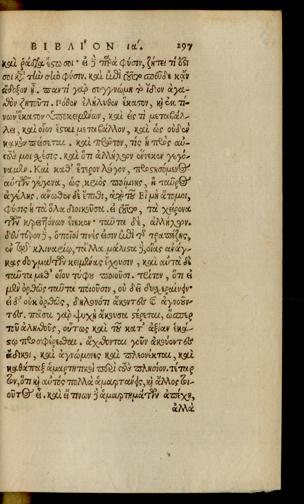 ΒΙΒΛΙ´ΟΝ ια΄. 197
καὶ ῥάδια ἔςτσοι· εἰ ἢ παρὰ φύσιν, ζήτει τί ὅδι
σοι κτ τὴν σὴν φύσιν. καὶ ἐπὶ τοῦτο σπεῦδε κἂν
ἄδοξον ᾖ. παντὶ γὰρ συγγνώμη τὸ ἴδιον ἀγα-
θὸν ζητοῦντι. πόθεν ἐλήλυθεν ἕκαστον, κ̀ ἐκ τί-
νων ἕκαστον ὑποκειμένων, καὶ εἰς τί μεταβάλ-
λει, καὶ οἷον ἔσται μεταβάλλον, καὶ ὡς οὐδὲν
κακὸν πείσεται. καὶ πρῶτον, τίς ἡ πρὸς αὐ-
τοὺς μοι χέσις. καὶ ὅτι ἀλλήλων ἕνεκεν γεγό-
ναμεν. καὶ καθ' ἕτερον λόγον, προστησόμενος
αὐτῶν γέγονα, ὡς κριὸς ποίμνης, ἢ ταῦρος
ἀγέλης. ἄνωθεν δὲ ἔπιθι, ἀπὸ τοῦ Εἰ μὴ ἄτομοι,
φύσις ἡ τὰ ὅλα διοικοῦσα. εἰ τοῦτο, τὰ χείρονα
τῶν κρειττόνων ἕνεκεν· ταῦτα δὲ, ἀλλήλων.
δεύτερον, ὁποῖοί τινές εἰσιν ἐπὶ τῆς τραπέζης,
ἐν τῷ κλιναρίῳ, τἄλλα. μάλιστα δὲ, οἵας ἀνάγ-
κας δογμάτων κειμένας ἔχουσιν, καὶ αὐτὰ δὲ
ταῦτα μεθ' οἵου τύφου ποιοῦσι. τρίτον, ὅτι εἰ
μὲν ὀρθῶς ταῦτα ποιοῦσιν, οὐ δεῖ δυσχεραίνειν·
εἰ δ' οὐκ ὀρθῶς, δηλονότι ἄκοντες κ̀ ἀγνοοῦν-
τες. πᾶσα γὰρ ψυχὴ ἄκουσα στέρεται, ὥσπερ
τοῦ ἀληθοῦς, οὕτως καὶ τοῦ κατ' ἀξίαν ἑκά-
στῳ προσφέρεσθαι. ἄχθονται γοῦν ἀκούοντες
ἄδικοι, καὶ ἀγνώμονες, καὶ πλεονέκται, καὶ
καθάπαξ ἁμαρτητικοὶ περὶ τοὺς πλησίον. τέταρ-
τον, ὅτι κ̀ αὐτὸς πολλὰ ἁμαρτάνεις, κ̀ ἄλλος τοι-
οῦτος εἶ. καὶ εἴ τινων δὲ ἁμαρτημάτων ἀπέχῃ,
ἀλλὰ